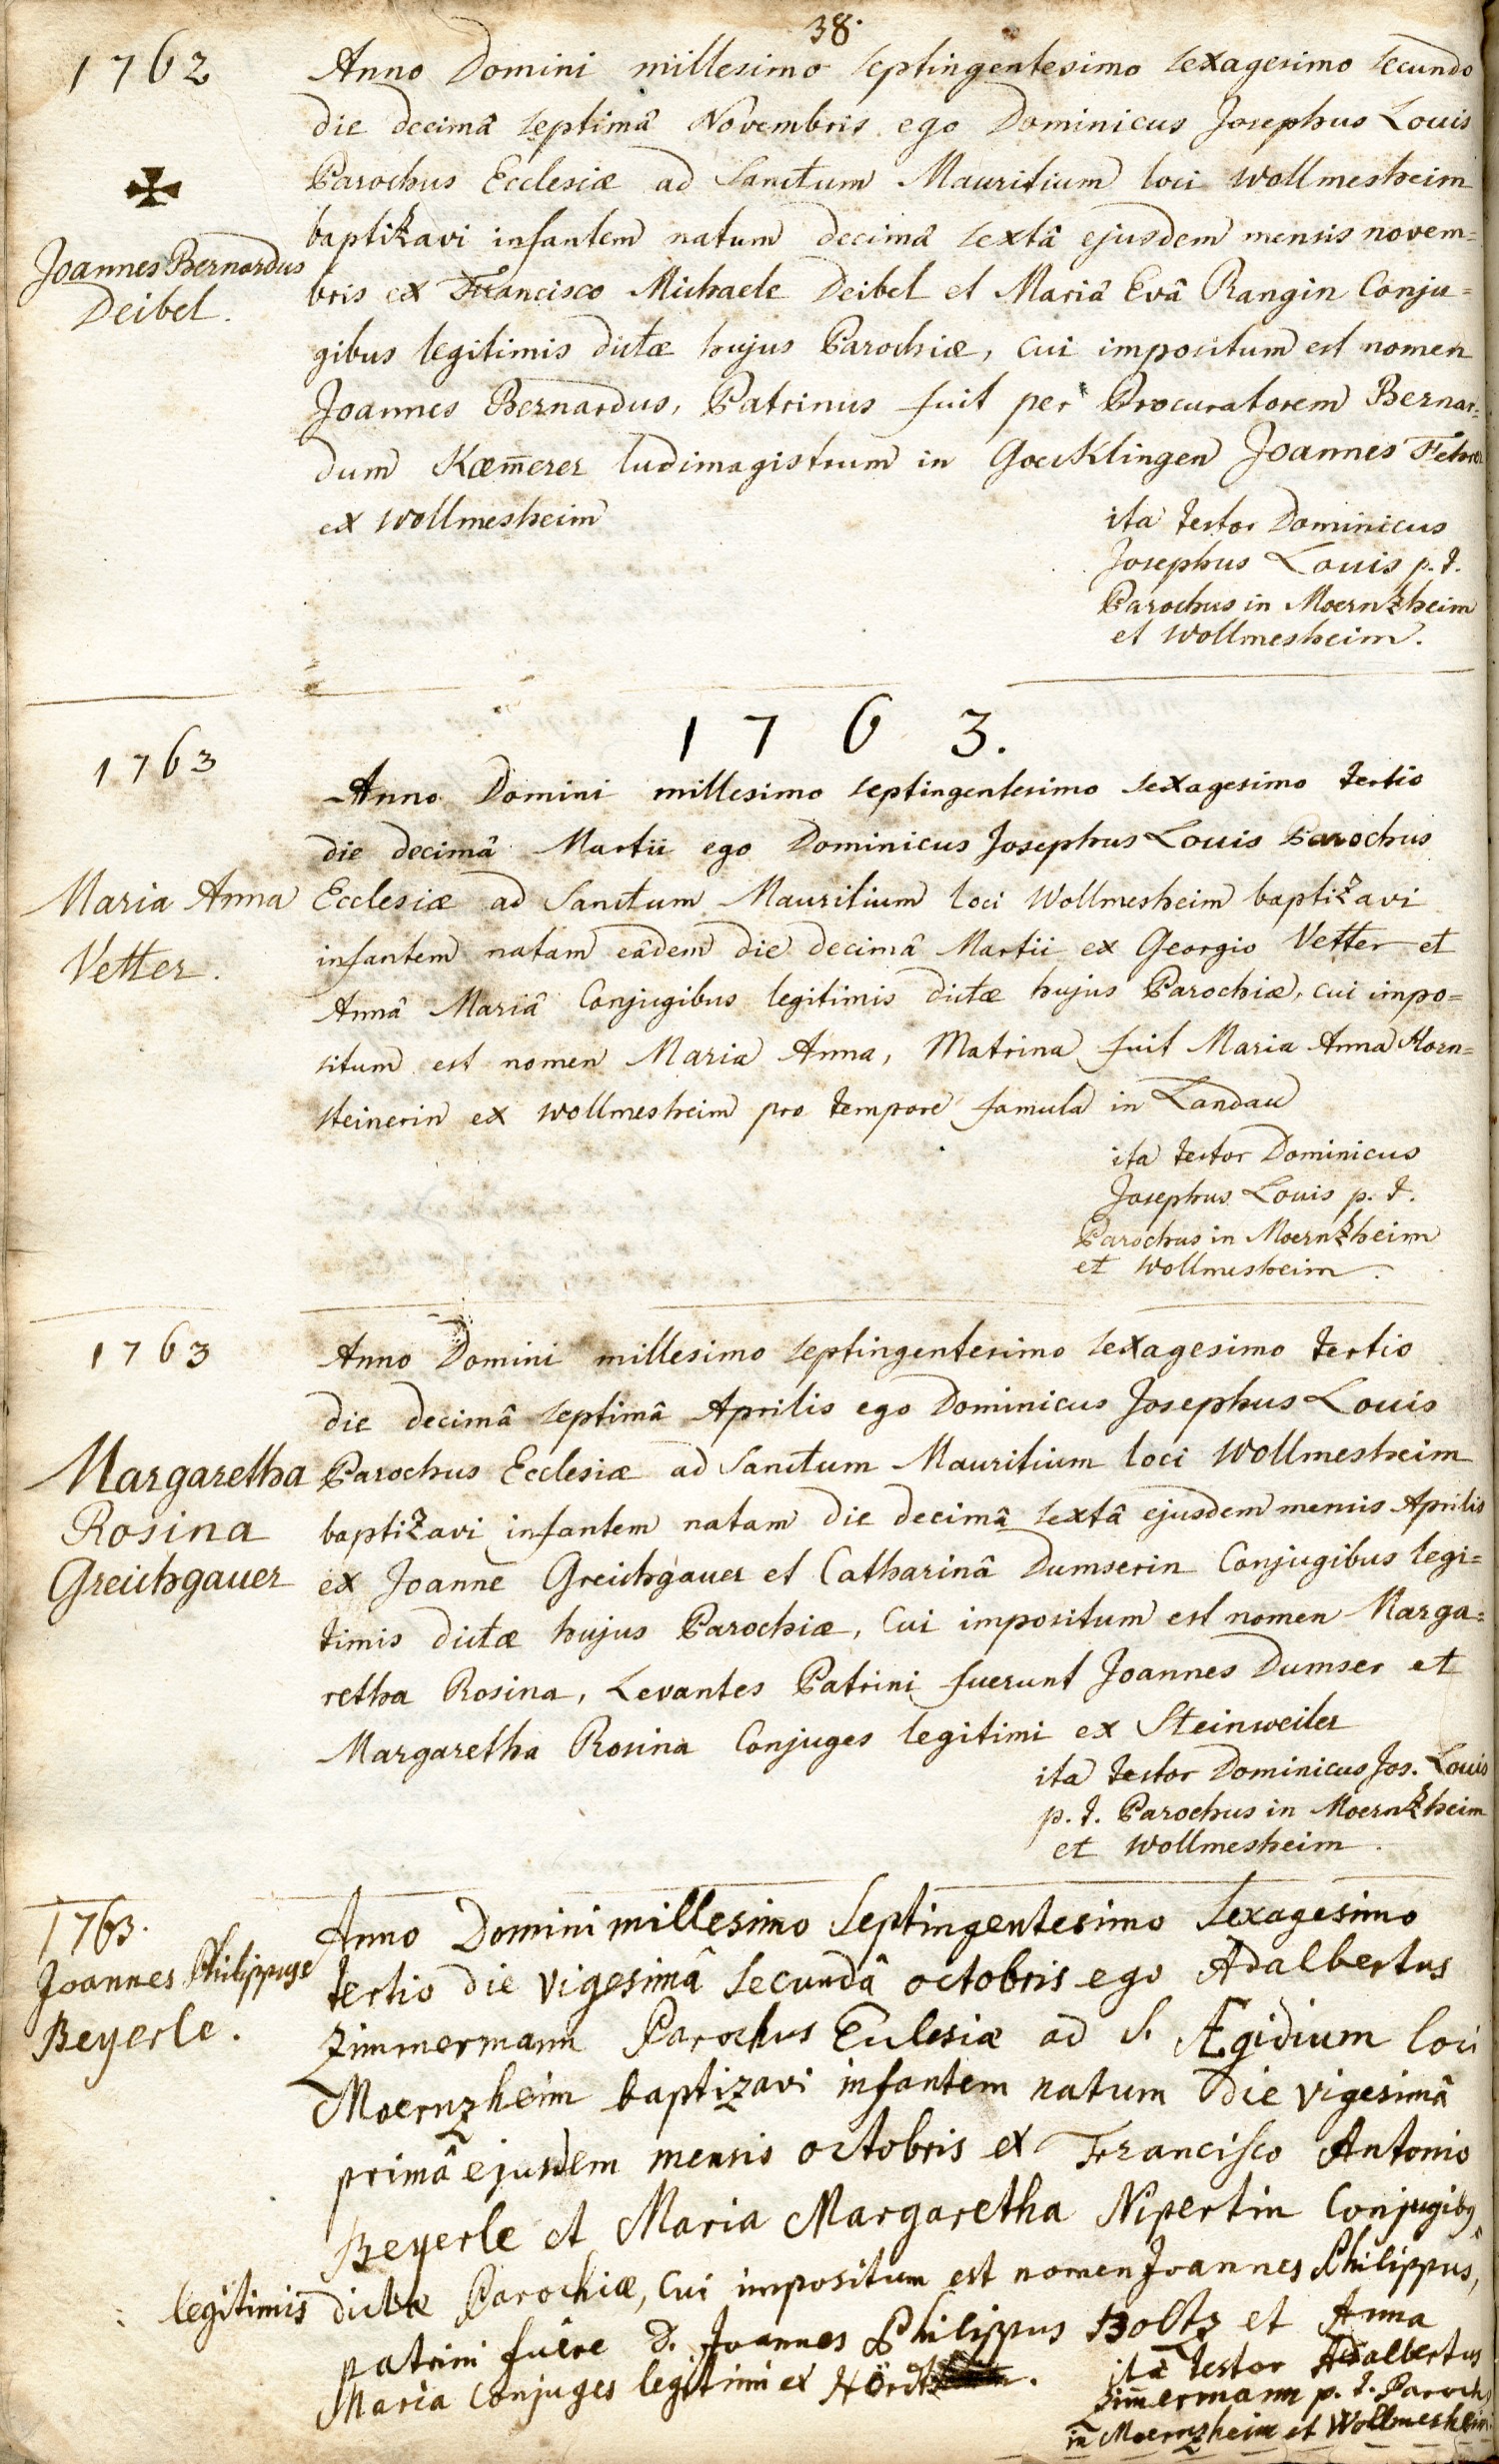 38.
1762
Anno Domini millesimo septingentesimo sexagesimo secundo
die decimâ septimâ Novembris ego Dominicus Josephus Louis
Parochus Ecclesiæ ad Sanctum Mauritium loci Wollmesheim
baptizavi infantem natum decimâ sextâ ejusdem mensis novem=
bris ex Francisco Michaele Deibel et Mariâ Evâ Rangin Conju=
gibus legitimis dictæ hujus Parochiæ, cui impositum est nomen
Joannes Bernardus, Patrinus fuit per Procuratorem Bernar=
dum Kæm̄erer ludimagistrum in Goecklingen Joannes
ex Wollmesheim
Joannes Bernardus
Deibel.
ita testor Dominicus
Josephus Louis p. t.
Parochus in Moernzheim
et Wollmesheim.
1763.
1763
Anno Domini millesimo septingentesimo sexagesimo tertio
die decimâ Martii ego Dominicus Josephus Louis Parochus
Ecclesiæ ad Sanctum Mauritium loci Wollmesheim baptizavi
infantem natam eâdem die decimâ Martii ex Georgio Vetter et
Annâ Mariâ Conjugibus legitimis dictæ hujus Parochiæ, cui impo=
situm est nomen Maria Anna, Matrina fuit Maria Anna Horn=
steinerin ex Wollmesheim pro tempore famula in Landau
Maria Anna
Vetter.
ita testor Dominicus
Josephus Louis p. t.
Parochus in Moernzheim
et Wollmesheim.
1763
Anno Domini millesimo septingentesimo sexagesimo tertio
die decimâ septimâ Aprilis ego Dominicus Josephus Louis
Parochus Ecclesiæ ad Sanctum Mauritium loci Wollmesheim
baptizavi infantem natam die decimâ sextâ ejusdem mensis Aprilis
ex Joanne Greichgauer et Catharinâ Dumserin Conjugibus legi=
timis dictæ hujus Parochiæ, Cui impositum est nomen Marga=
retha Rosina, Levantes Patrini fuerunt Joannes Dumser et
Margaretha Rosina Conjuges legitimi ex Steinweiler
Margaretha
Rosina
Greichgauer
ita testor Dominicus Jos. Louis
p. t. Parochus in Moernzheim
et Wollmesheim.
1763.
Joannes Philippus
Beyerle.
Anno Domini millesimo Septingentesimo Sexagesimo
tertio die vigesimâ secundâ octobris ego Adalbertus
Zimmermann Parochus Ecclesiæ ad S. Ægidium loci
Moernzheim baptizavi infantem natum die vigesimâ
primâ ejusdem mensis octobris ex Francisco Antonio
Beyerle et Maria Margaretha Nipertin Conjugibus
legitimis dictæ Parochiæ, Cui impositum est nomen Joannes Philippus,
patrini fuêre D. Joannes Philippus Boltz et Anna
Maria Conjuges legitimi ex Hördt.
ita testor Adalbertus
Zim̄ermann p. t. Paroch,
in Moernzheim et Wollmesheim